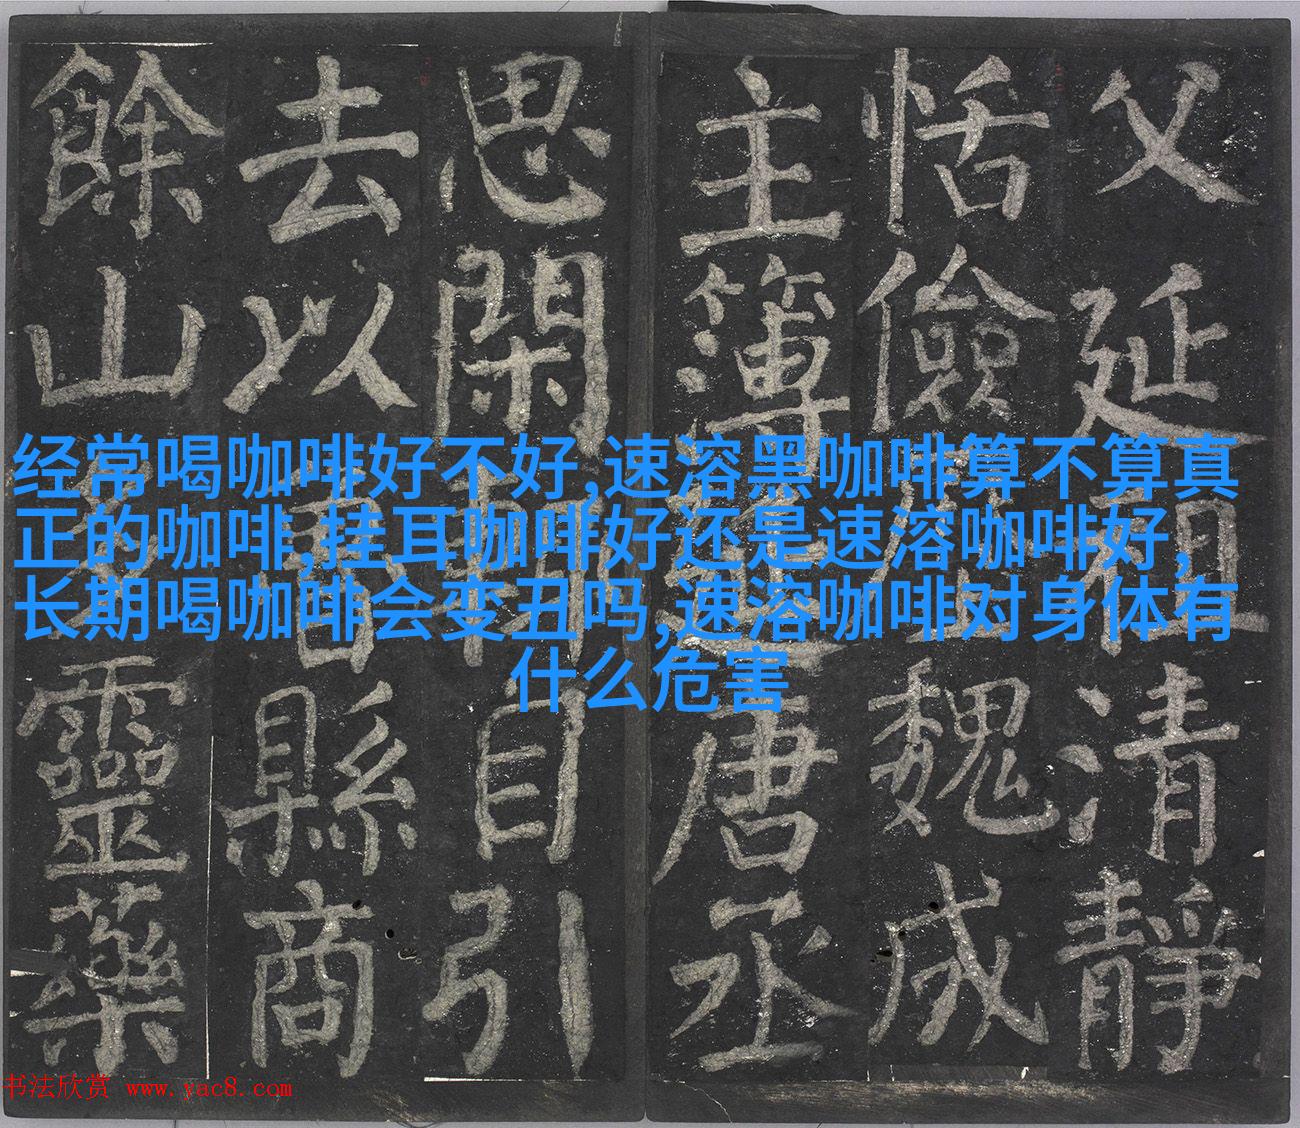 经常喝咖啡好不好,速溶黑咖啡算不算真
正的咖啡,挂耳咖啡好还是速溶咖啡好,
长期喝咖啡会变丑吗,速溶咖啡对身体有
什么危害
父延祖清靜
恬儉魏成
主簿唐丞
思閑自引
去以縣商
餘山靈藥
书法欣赏 www.yac8.com